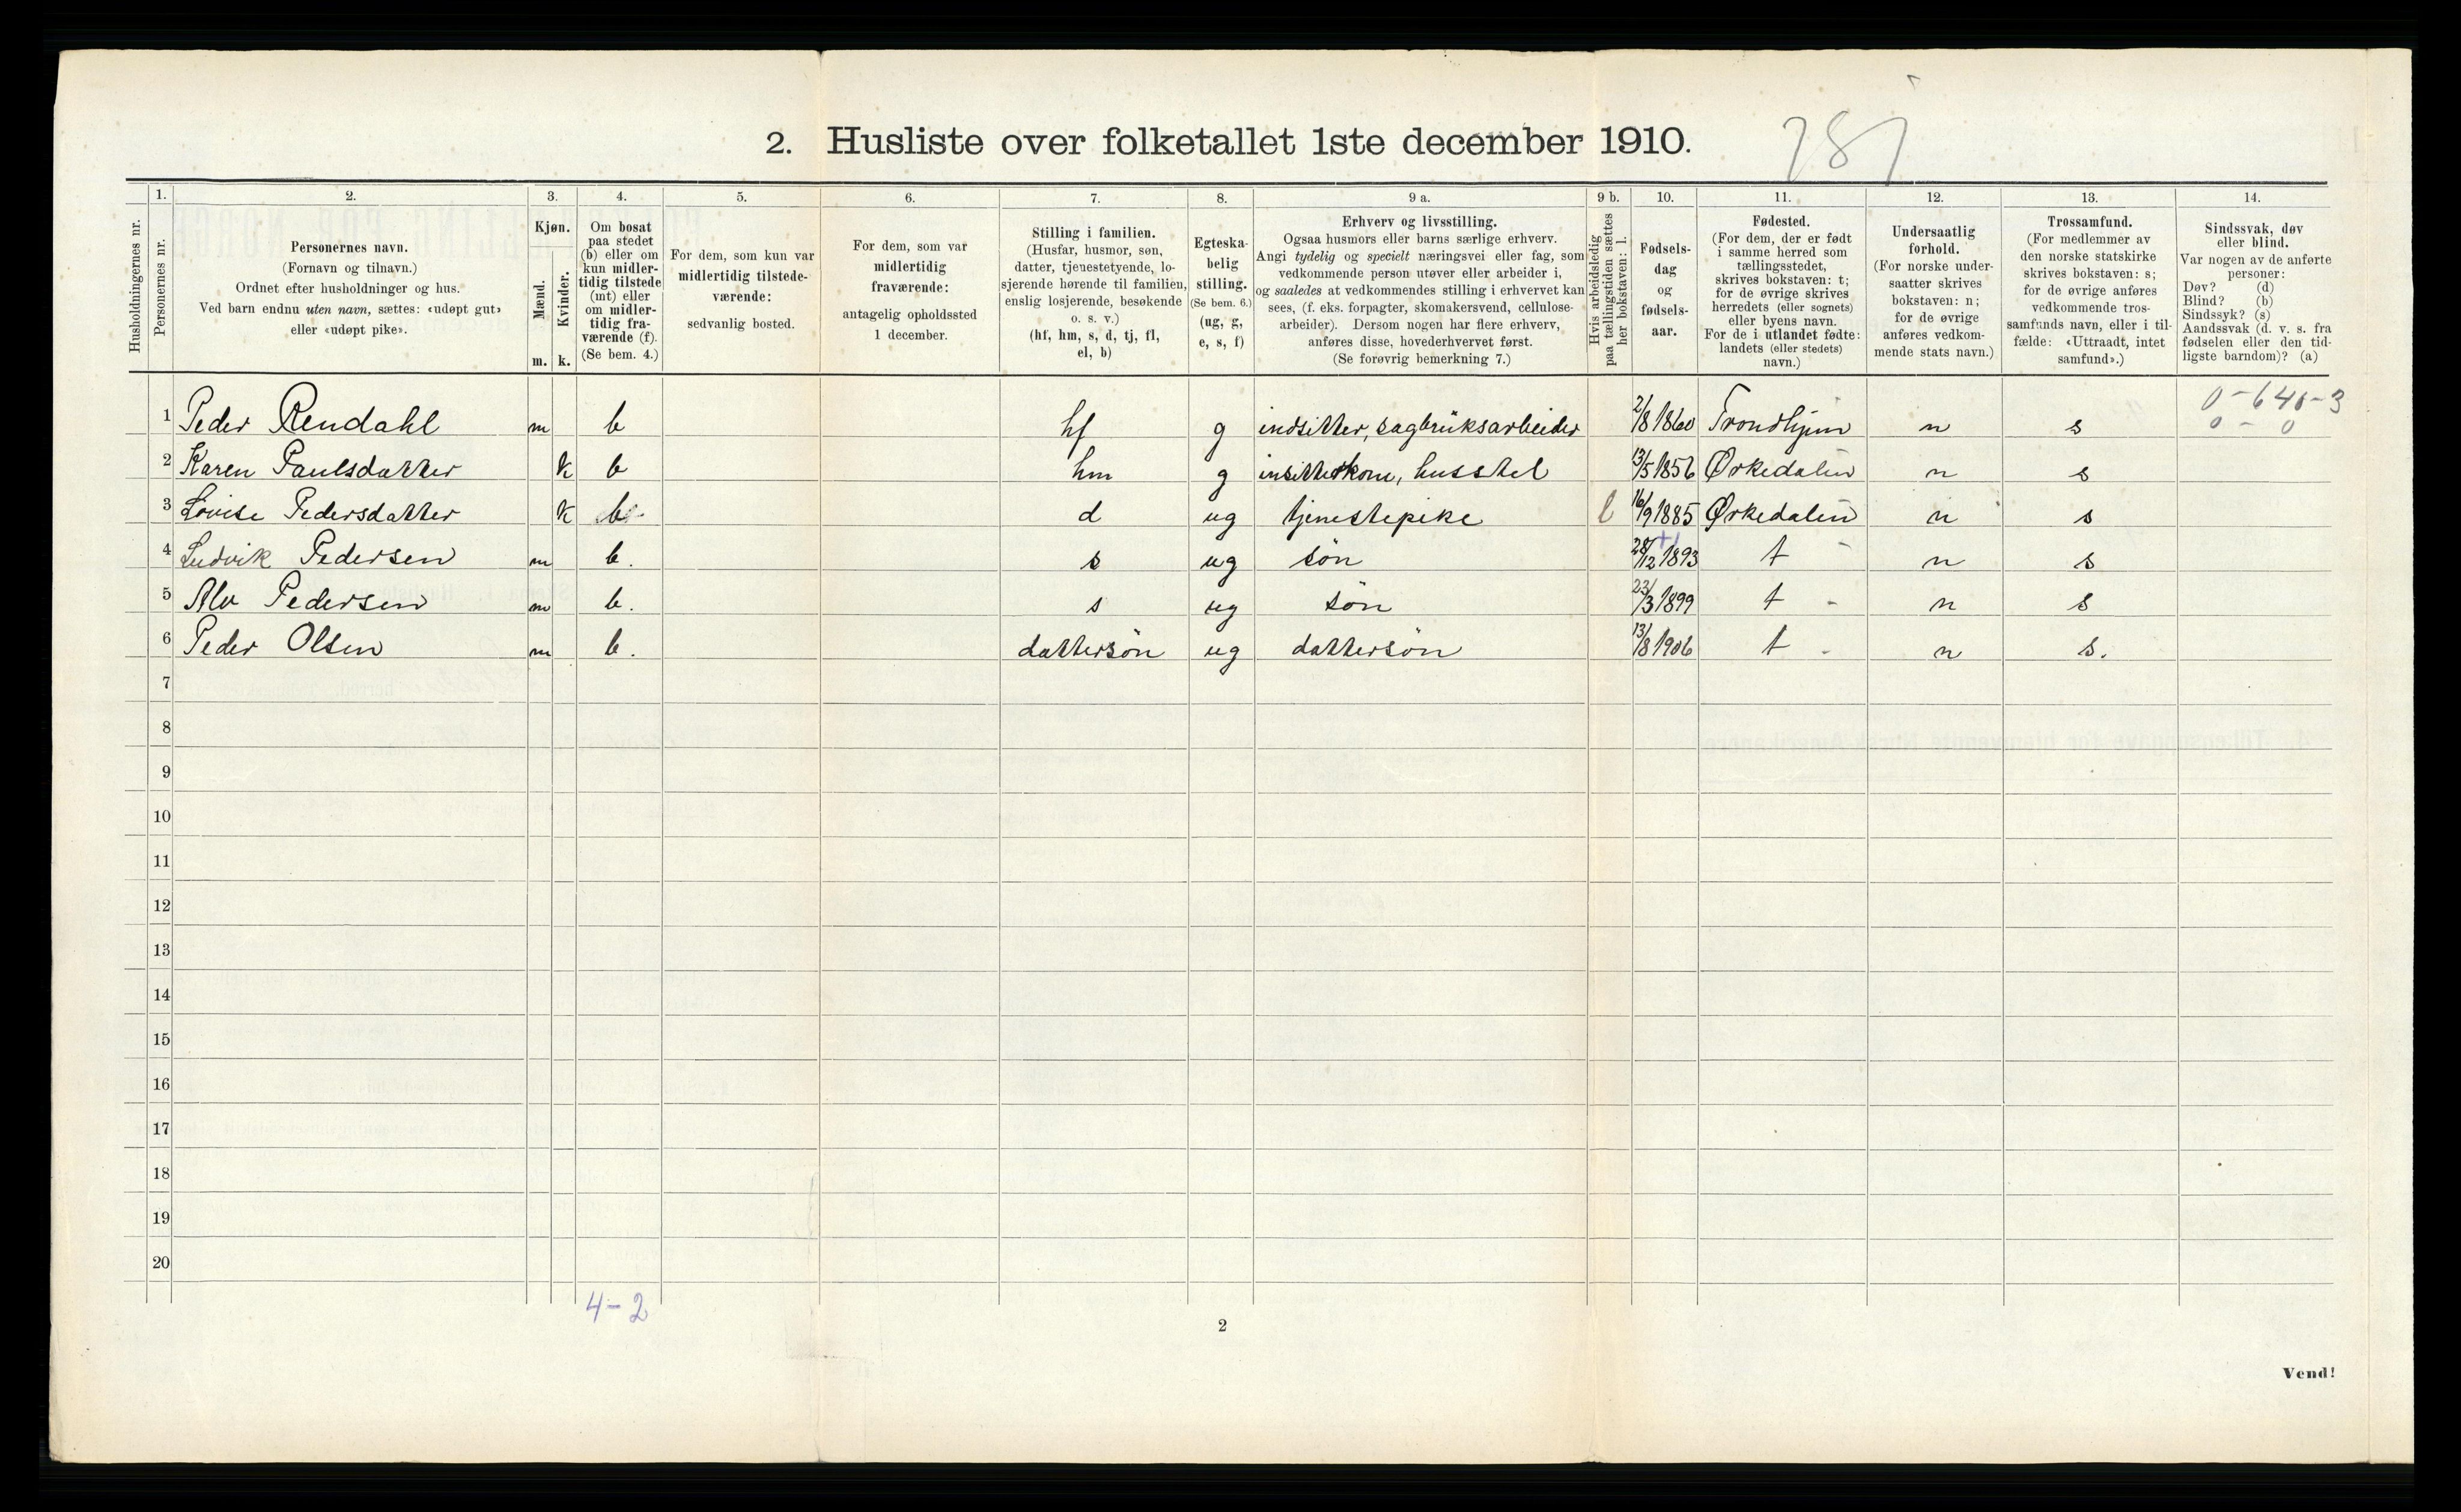 2. Husliste over folketallet 1ste december 1910.
Husholdningernes nr.
1. Personernes nr.
2. Personernes navn.
(Fornavn og tilnavn.)
Ordnet efter husholdninger og hus.
Ved barn endnu uten navn, sættes: «udøpt gut»
eller «udøpt pike».
3. Kjøn.
Mænd. m.
Kvinder. k.
4. Om bosat
paa stedet
(b) eller om
kun midler-
tidig tilstede
(mt) eller
om midler-
tidig fra-
værende (f).
(Se bem. 4.)
5. For dem, som kun var
midlertidig tilstede-
værende:
sedvanlig bosted.
6. For dem, som var
midlertidig
fraværende:
antagelig opholdssted
1 december.
7. Stilling i familien.
(Husfar, husmor, søn,
datter, tjenestetyende, lo-
sjerende hørende til familien,
enslig losjerende, besøkende
o. s. v.)
(hf, hm, s, d, tj, fl,
el, b)
8. Egteska-
belig
stilling.
(Se bem. 6.)
(ug, g,
e, s, f)
9 a. Erhverv og livsstilling.
Ogsaa husmors eller barns særlige erhverv.
Angi tydelig og specielt næringsvei eller fag, som
vedkommende person utøver eller arbeider i,
og saaledes at vedkommendes stilling i erhvervet kan
sees, (f. eks. forpagter, skomakersvend, cellulose-
arbeider). Dersom nogen har flere erhverv,
anføres disse, hovederhvervet først.
(Se forøvrig bemerkning 7.)
9 b. Hvis arbeidsledig
paa tællingstiden sættes
her bokstaven: l.
10. Fødsels-
dag
og
fødsels-
aar.
11. Fødested.
(For dem, der er født
i samme herred som
tællingsstedet,
skrives bokstaven: t;
for de øvrige skrives
herredets (eller sognets)
eller byens navn.
For de i utlandet fødte:
landets (eller stedets)
navn.)
12. Undersaatlig
forhold.
(For norske under-
saatter skrives
bokstaven: n;
for de øvrige
anføres vedkom-
mende stats navn.)
13. Trossamfund.
(For medlemmer av
den norske statskirke
skrives bokstaven: s;
for de øvrige anføres
vedkommende tros-
samfunds navn, eller i til-
fælde: «Uttraadt, intet
samfund».)
14. Sindssvak, døv
eller blind.
Var nogen av de anførte
personer:
Døv? (d)
Blind? (b)
Sindssyk? (s)
Aandssvak (d. v. s. fra
fødselen eller den tid-
ligste barndom)? (a)
1 Peder Rendahl m b hf g indsitter, sagbruksarbeider 2/8 1860 Trondhjem n s 0 - 0
2 Karen Paulsdatter k b hm g insitterkone, husstel 13/5 1856 Ørkedalen n s
3 Lovise Pedersdatter k b d ug tjenestepike l 16/9 1885 Ørkedalen n s
4 Ludvik Pedersen m b. s ug søn 28/12 1893 t - n s
5 Alv Pedersen m b. s ug søn 23/3 1899 t - n s
6 Peder Olsen m b. dattersøn ug dattersøn 13/8 1906 t - n s.
7
8
9
10
11
12
13
14
15
16
17
18
19
20
4-2
2
Vend!